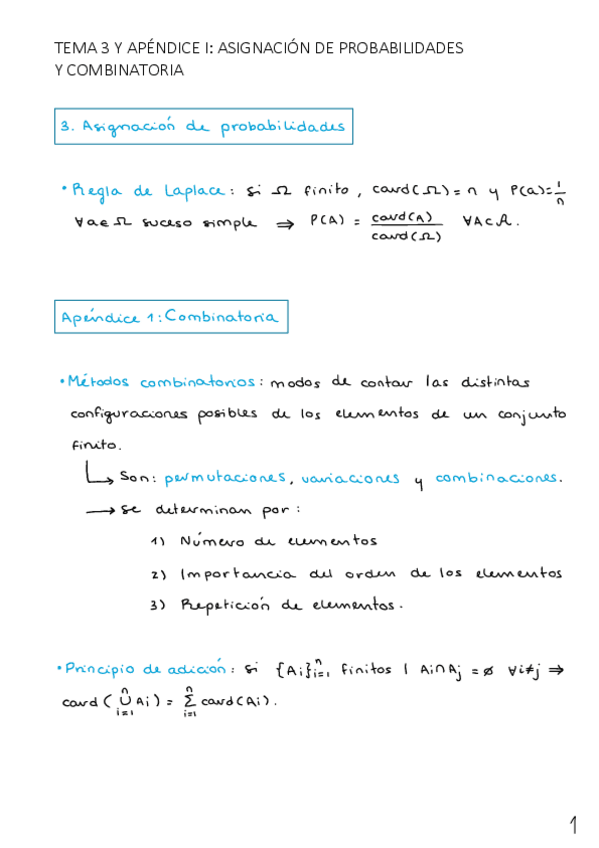 TEMA 3 Y APÉNDICE I: ASIGNACIÓN DE PROBABILIDADES
Y COMBINATORIA
3. Asignación de probabilidades
• Regla de Laplace: si Ω finito, card(Ω) = n y P(a) = 1/n
∀a∈Ω suceso simple ⇒ P(A) = card(A)/card(Ω) ∀A⊂𝒜.
Apéndice 1: Combinatoria
• Métodos combinatorios: modos de contar las distintas
configuraciones posibles de los elementos de un conjunto
finito.
↳ Son: permutaciones, variaciones y combinaciones.
→ se determinan por:
1) Número de elementos
2) Importancia del orden de los elementos
3) Repetición de elementos.
• Principio de adición: si {Ai}ⁿᵢ₌₁ finitos | Ai∩Aj = ∅ ∀i≠j ⇒
card(ⁿ∪ᵢ₌₁ Ai) = ⁿΣᵢ₌₁ card(Ai).
1